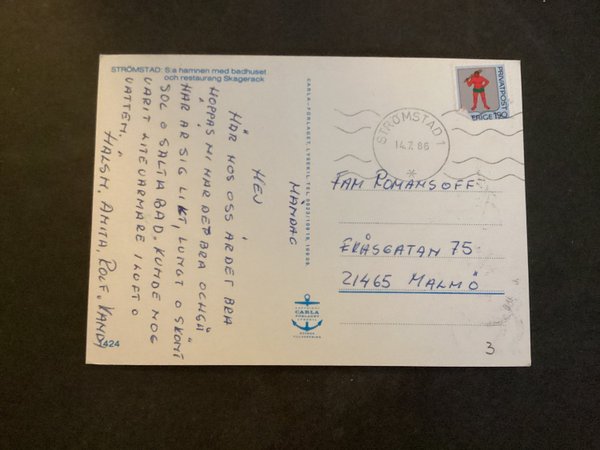 STRÖMSTAD: S:a hamnen med badhuset
och restaurang Skagerack
MÅNDAG
HEJ
HÄR HOS OSS ÄR DET BRA
HOPPAS NI HAR DET BRA OCHSÅ
HÄR ÄR SIG LIKT, LUNGT O SKÖNT
SOL O SALTA BAD. KUNDE NOG
VARIT LITE VARMARE I LUFT O
VATTEN.
HÄLSN. ANITA, ROLF,
CARLA-FÖRLAGET, LYSEKIL TEL.
CARLA
FÖRLAGET
STRÖMSTAD 1
14.7.86
PRIVATPOST
ERIGE 1.90
FAM ROMANSOFF
FRÅSGATAN 75
21465 MALMÖ
3